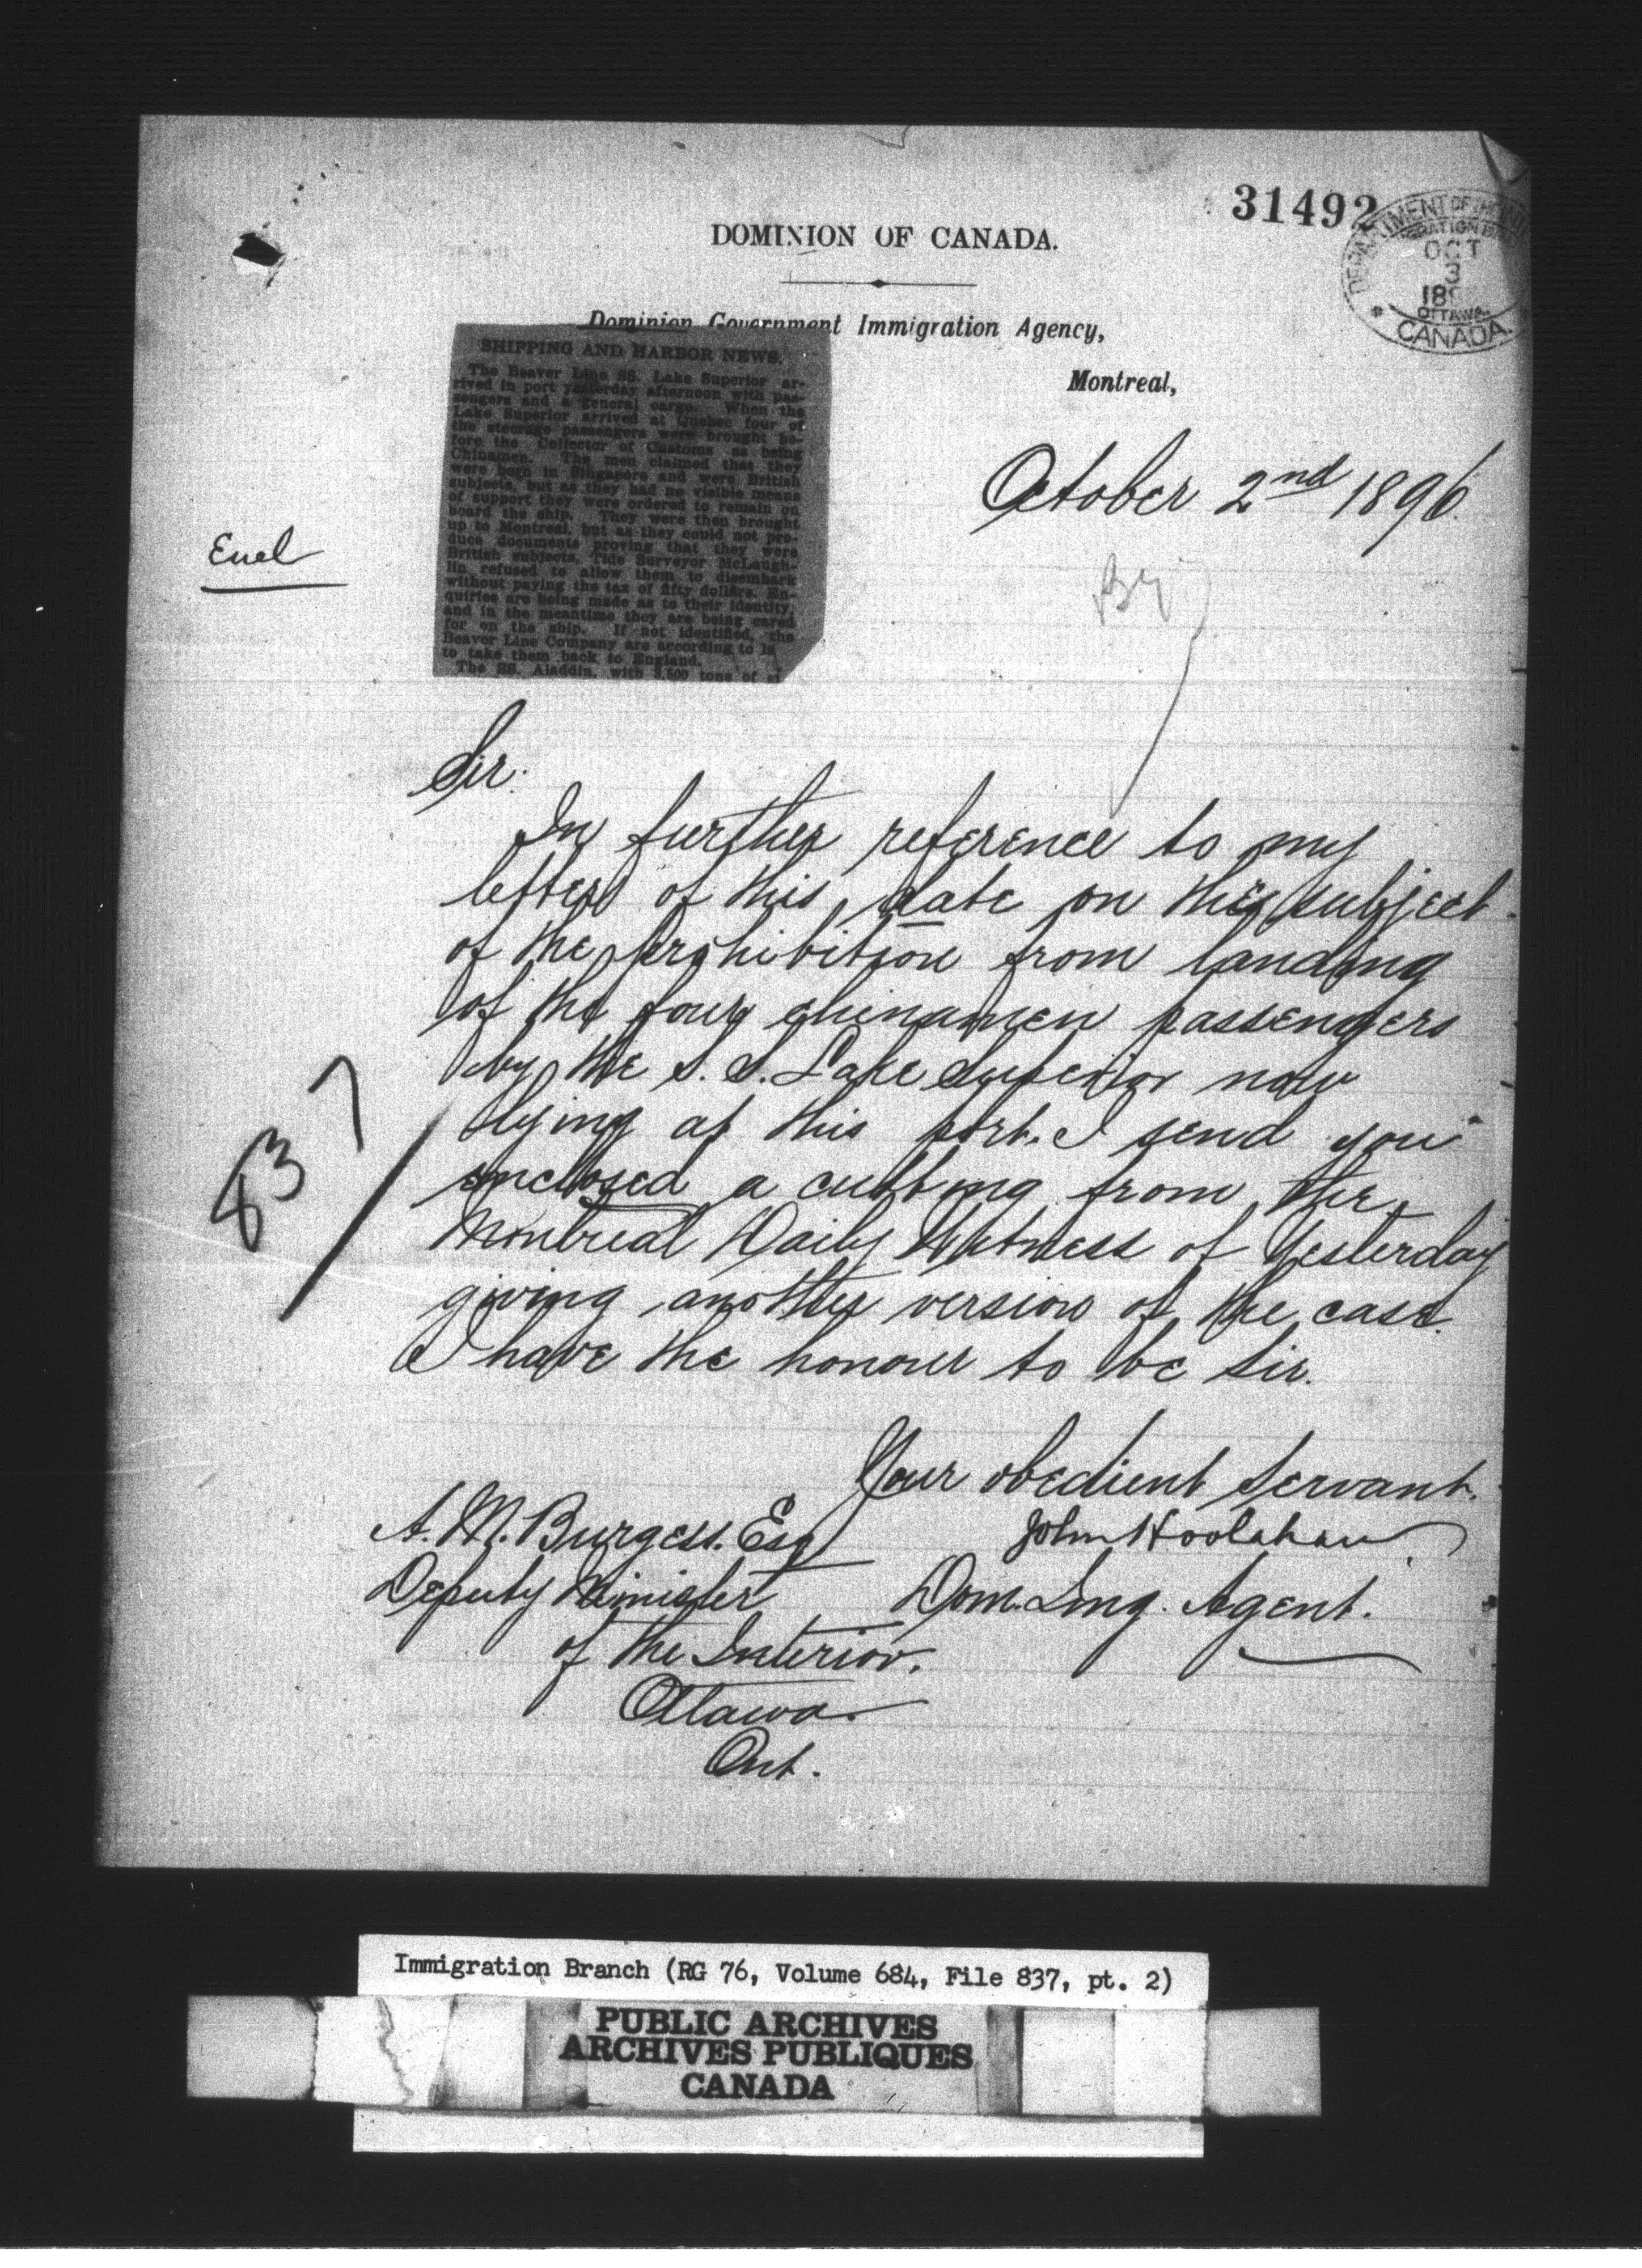 31492
DEPARTMENT OF THE INTERIOR
OCT
3
OTTAWA
CANADA.
DOMINION OF CANADA.
Dominion Government Immigration Agency,
Montreal,
October 2nd 1896.
Encl
SHIPPING AND HARBOR NEWS.
The Beaver Line SS. Lake Superior ar-
rived in port yesterday afternoon with pas-
sengers and a general cargo. When the
Lake Superior arrived at Quebec four of
the steerage passengers were brought be-
fore the Collector of Customs as being
Chinamen. The men claimed that they
were born in Singapore and were British
subjects, but as they had no visible means
of support they were ordered to remain on
board the ship. They were then brought
up to Montreal, but as they could not pro-
duce documents proving that they were
British subjects, Tide Surveyor McLaugh-
lin refused to allow them to disembark
without paying the tax of fifty dollars. En-
quiries are being made as to their identity,
and in the meantime they are being cared
for on the ship. If not identified, the
Beaver Line Company are according to la
to take them back to England.
The SS. Aladdin, with 3,500 tons of
Sir:
In further reference to my
letter of this date on the subject
of the prohibition from landing
of the four chinamen passengers
by the S. S. Lake Superior now
lying at this port. I send you
enclosed a cutting from the
Montreal Daily Witness of Yesterday
giving another version of the case.
I have the honour to be Sir.
837
Your obedient Servant.
John Hoolahan
Dom. Img. Agent.
A. M. Burgess. Esq
Deputy Minister
of the Interior.
Ottawa.
Ont.
Immigration Branch (RG 76, Volume 684, File 837, pt. 2)
PUBLIC ARCHIVES
ARCHIVES PUBLIQUES
CANADA